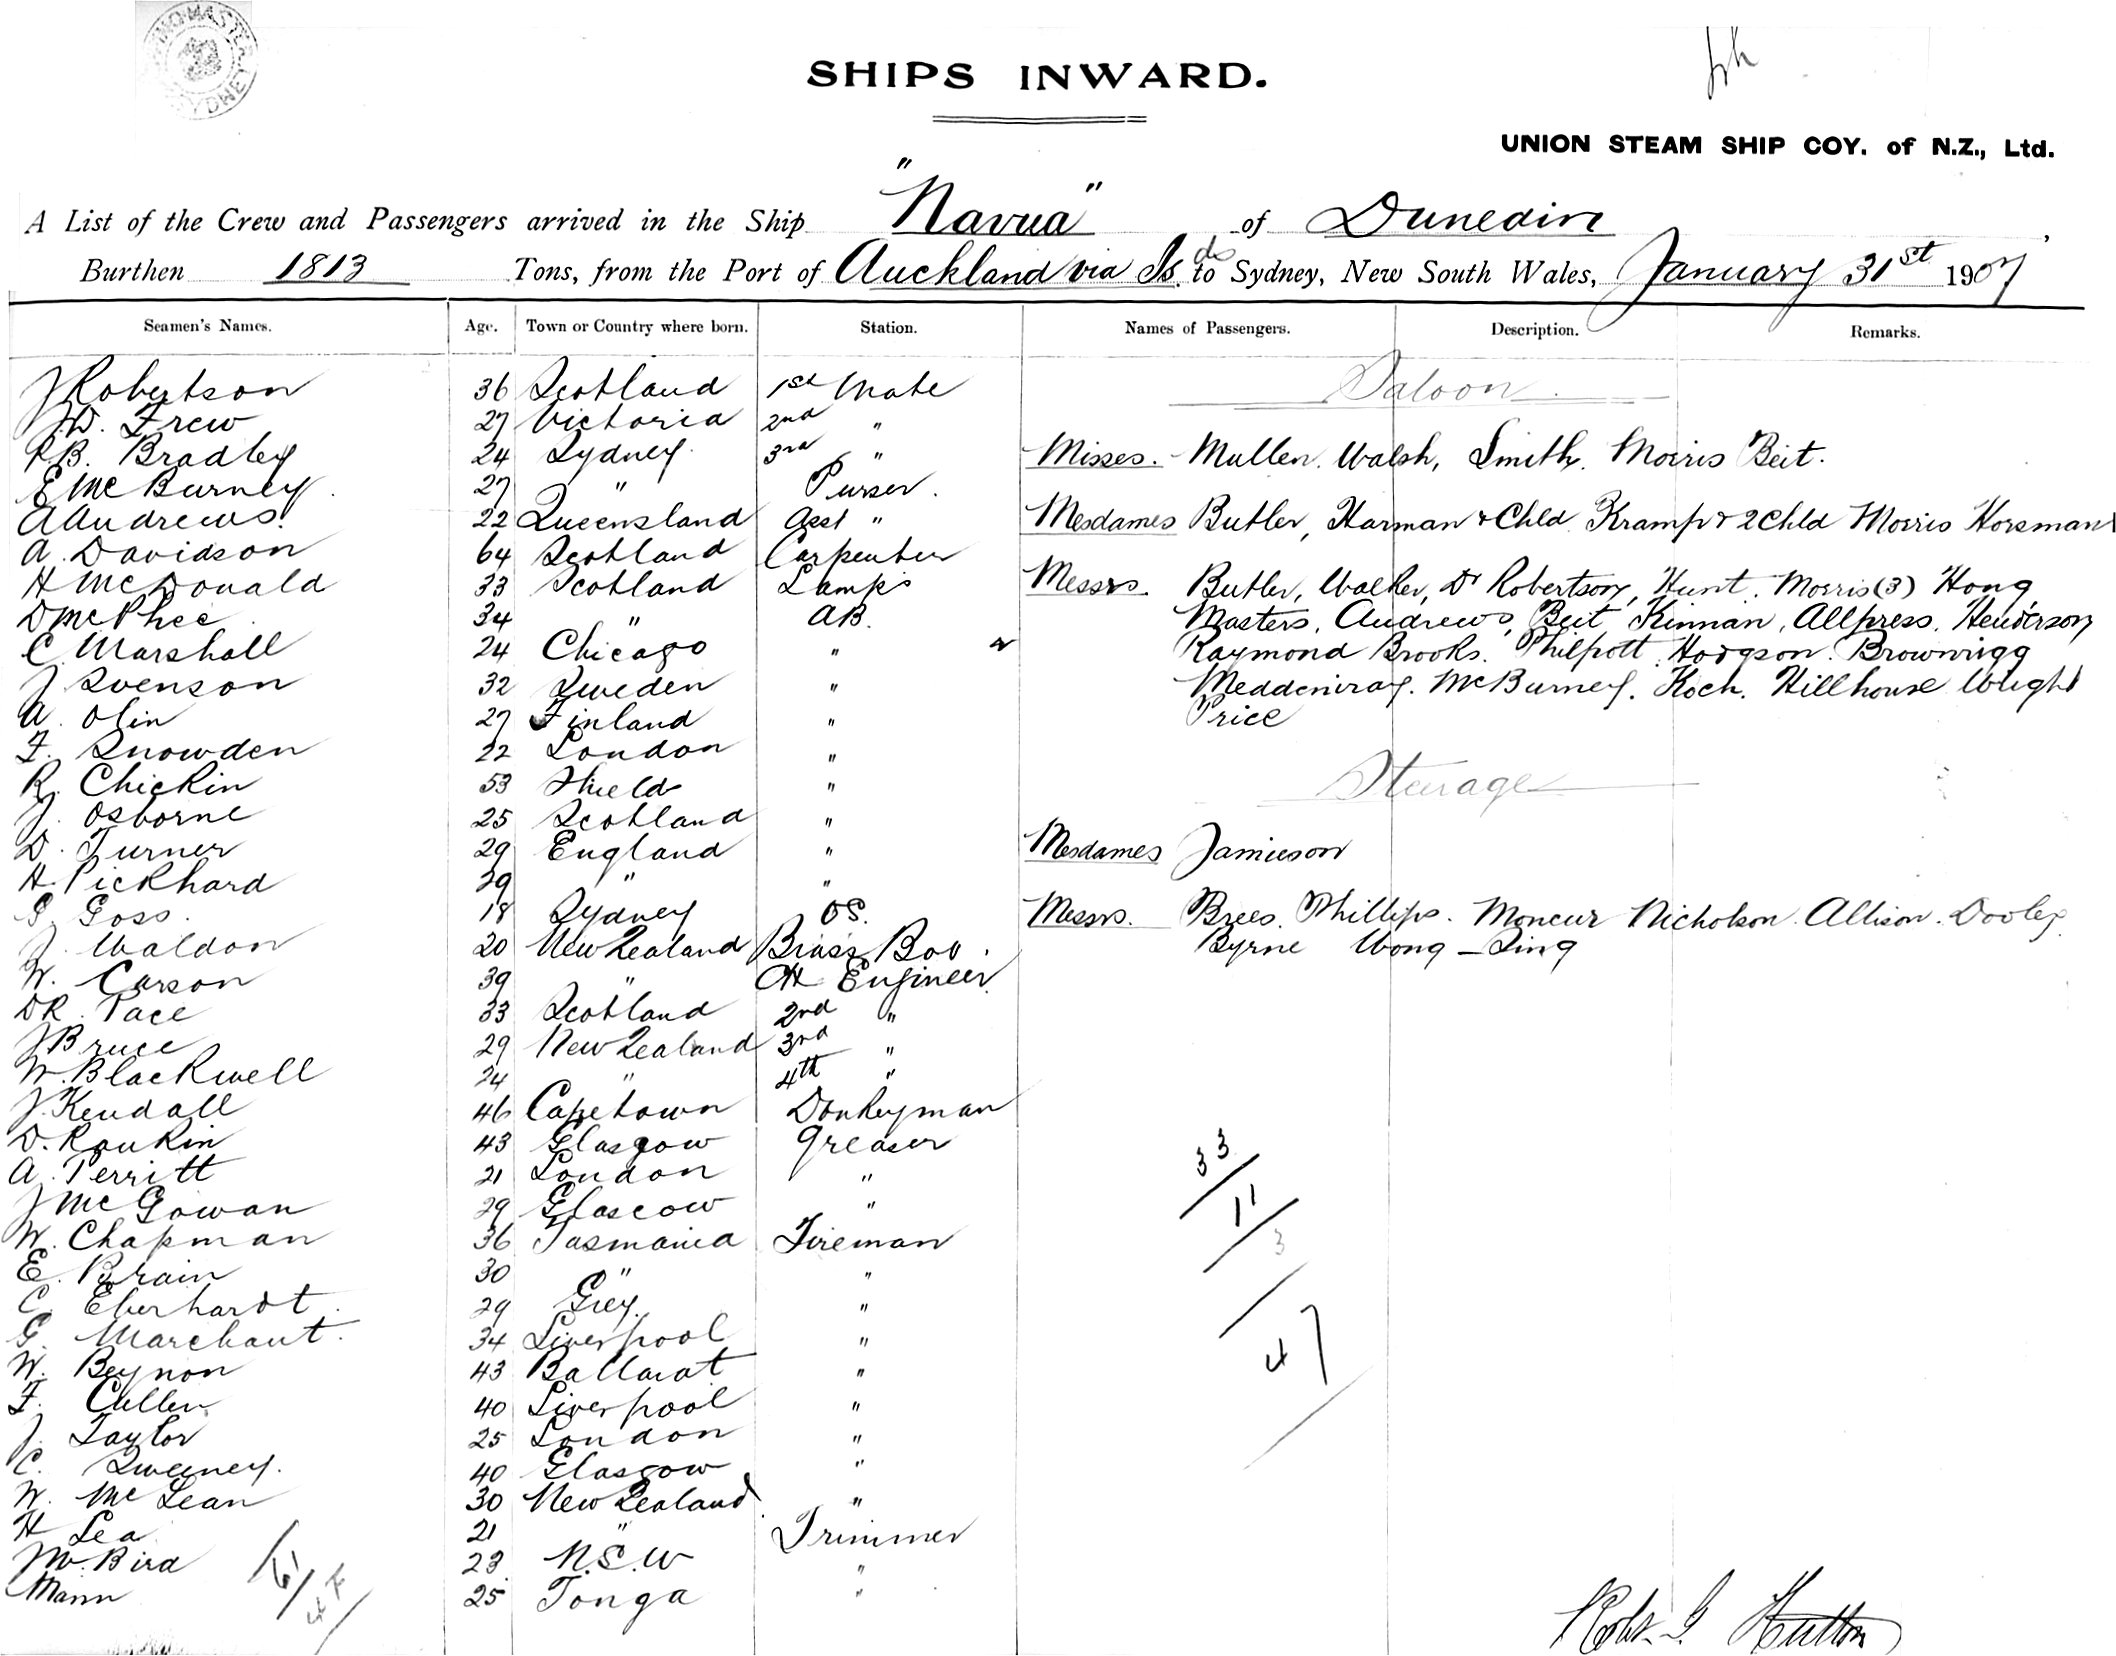 SHIPS INWARD.
UNION STEAM SHIP COY. of N.Z., Ltd.
A List of the Crew and Passengers arrived in the Ship "Navua" of Dunedin,
Burthen 1813 Tons, from the Port of Auckland via Is.ds to Sydney, New South Wales, January 31st 1907
Seamen's Names. Age. Town or Country where born. Station. Names of Passengers. Description. Remarks.
J Robertson 36 Scotland 1st Mate
J.W. Frew 27 Victoria 2nd "
R.B. Bradley 24 Sydney 3rd "
E McBurney 27 " Purser.
A Andrews 22 Queensland Asst "
A. Davidson 64 Scotland Carpenter
H McDonald 33 Scotland Lamps
D McPhee 34 " AB.
C Marshall 24 Chicago "
J Svenson 32 Sweden "
A. Olin 27 Finland "
F. Snowden 22 London "
R. Chickin 53 Shield "
J. Osborne 25 Scotland "
D. Turner 29 England "
H. Pickhard 29 " "
G. Goss. 18 Sydney OS.
J. Waldon 20 New Zealand Brass Boy.
W. Carson 39 " Ch Engineer.
DR. Pace 33 Scotland 2nd "
J Bruce 29 New Zealand 3rd "
W. Blackwell 24 " 4th "
J. Kendall 46 Capetown Donkeyman
D. Rankin 43 Glasgow Greaser
A. Perritt 21 London "
J McGowan 29 Glascow "
W. Chapman 36 Tasmania Fireman
E. Brain 30 " "
C. Eberhardt. 29 Grey. "
G. Marchant. 34 Liverpool "
W. Beynon 43 Ballarat "
F. Cullen 40 Liverpool "
J. Taylor 25 London "
C. Sweeney. 40 Glasgow "
W. McLean 30 New Zealand "
H Lea 21 " Trimmer
J W. Bird 23 N.S.W "
Mann 25 Tonga "
Saloon
Misses. Mullen. Walsh, Smith. Morris Beit.
Mesdames Butler, Harman & Chld. Kramp & 2 Chld Morris Horsman
Messrs. Butler, Walker, Dr Robertson, Hunt. Morris (3) Hong
Masters. Andrews, Beit Kinnan, Allpress. Henderson
Raymond Brooks. Philpott. Hodgson. Brownrigg
McBurney. Koch. Hillhouse Wright
Price
Steerage
Mesdames Jamieson
Messrs. Brees. Phillips. Moncur Nicholson. Allison. Dooley.
Byrne Wong - Sing
33
11
3
47
Robt. G Hutton